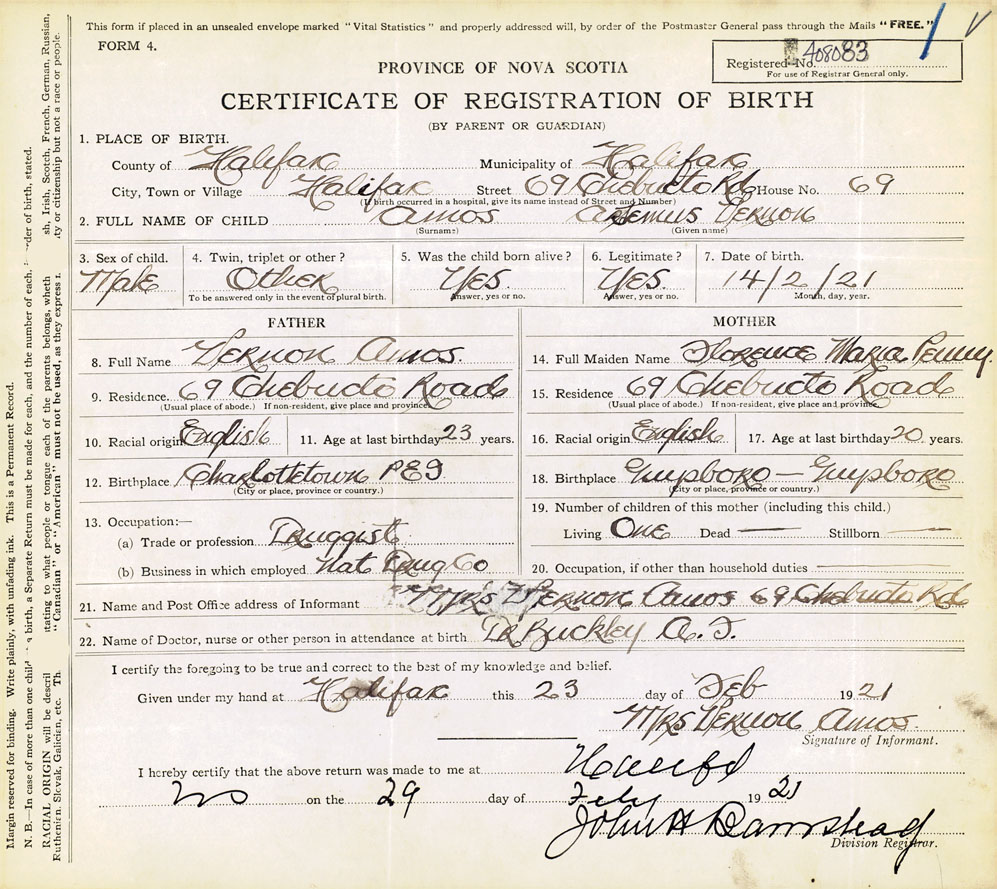 This form if placed in an unsealed envelope marked "Vital Statistics" and properly addressed will, by order of the Postmaster General pass through the Mails "FREE."
FORM 4.
Registered No. 408083
For use of Registrar General only.
PROVINCE OF NOVA SCOTIA
CERTIFICATE OF REGISTRATION OF BIRTH
(BY PARENT OR GUARDIAN)
1. PLACE OF BIRTH.
County of Halifax Municipality of Halifax
City, Town or Village Halifax Street 69 Chebucto Rd House No. 69
(If birth occurred in a hospital, give its name instead of Street and Number)
2. FULL NAME OF CHILD Amos Artemus Vernon
(Surname) (Given name)
3. Sex of child. 4. Twin, triplet or other? 5. Was the child born alive? 6. Legitimate? 7. Date of birth.
Male Other Yes. Yes. 14/2/21
To be answered only in the event of plural birth. Answer, yes or no. Answer, yes or no. Month, day, year.
FATHER
8. Full Name Vernon Amos.
9. Residence. 69 Chebucto Road
(Usual place of abode.) If non-resident, give place and province.
10. Racial origin English 11. Age at last birthday 23 years.
12. Birthplace Charlottetown PEI
(City or place, province or country.)
13. Occupation:—
(a) Trade or profession Druggist
(b) Business in which employed Nat Drug Co
MOTHER
14. Full Maiden Name Florence Maria Penny.
15. Residence 69 Chebucto Road
(Usual place of abode.) If non-resident, give place and province.
16. Racial origin English 17. Age at last birthday 20 years.
18. Birthplace Guysboro — Guysboro
(City or place, province or country.)
19. Number of children of this mother (including this child.)
Living One Dead — Stillborn —
20. Occupation, if other than household duties —
21. Name and Post Office address of Informant Mrs Vernon Amos 69 Chebucto Rd
22. Name of Doctor, nurse or other person in attendance at birth Dr Buckley A. J.
I certify the foregoing to be true and correct to the best of my knowledge and belief.
Given under my hand at Halifax this 23 day of Feb 1921
Mrs Vernon Amos.
Signature of Informant.
I hereby certify that the above return was made to me at Halifax
on the 29 day of Feby 1921
John H Barnstead
Division Registrar.
Margin reserved for binding. Write plainly, with unfading ink. This is a Permanent Record.
N. B.—In case of more than one child birth, a Separate Return must be made for each, and the number of each, order of birth, stated.
RACIAL ORIGIN will be stating to what people or tongue each of the parents belongs,
Ruthenian, Slovak, Galician, etc. "Canadian" or "American" must not be used, as they express
Irish, Scotch, French, German, Russian,
or citizenship but not a race or people.